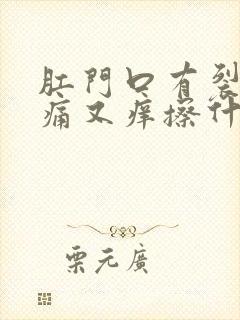 肛門口有裂
痛又痒擦什
栗元廣